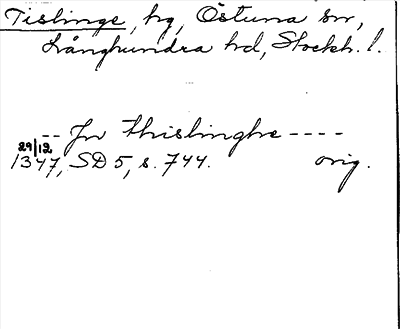 Tislinge, hg, Östuna sn,
Långhundra hd, Stockh. l.
-- Jn thislinghe ----
29/12
1347, SD 5, s. 744. orig.